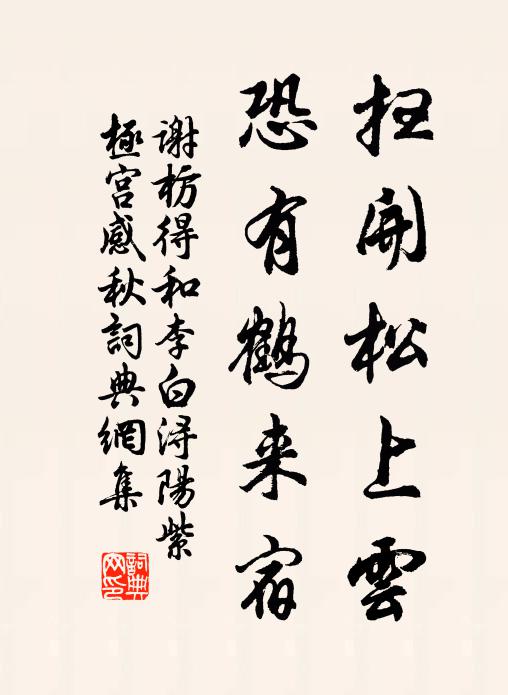 扫開松上雲
恐有鶴来宿
谢枋得和李白浔陽紫
極宫感秋詞典網集
詞典網印